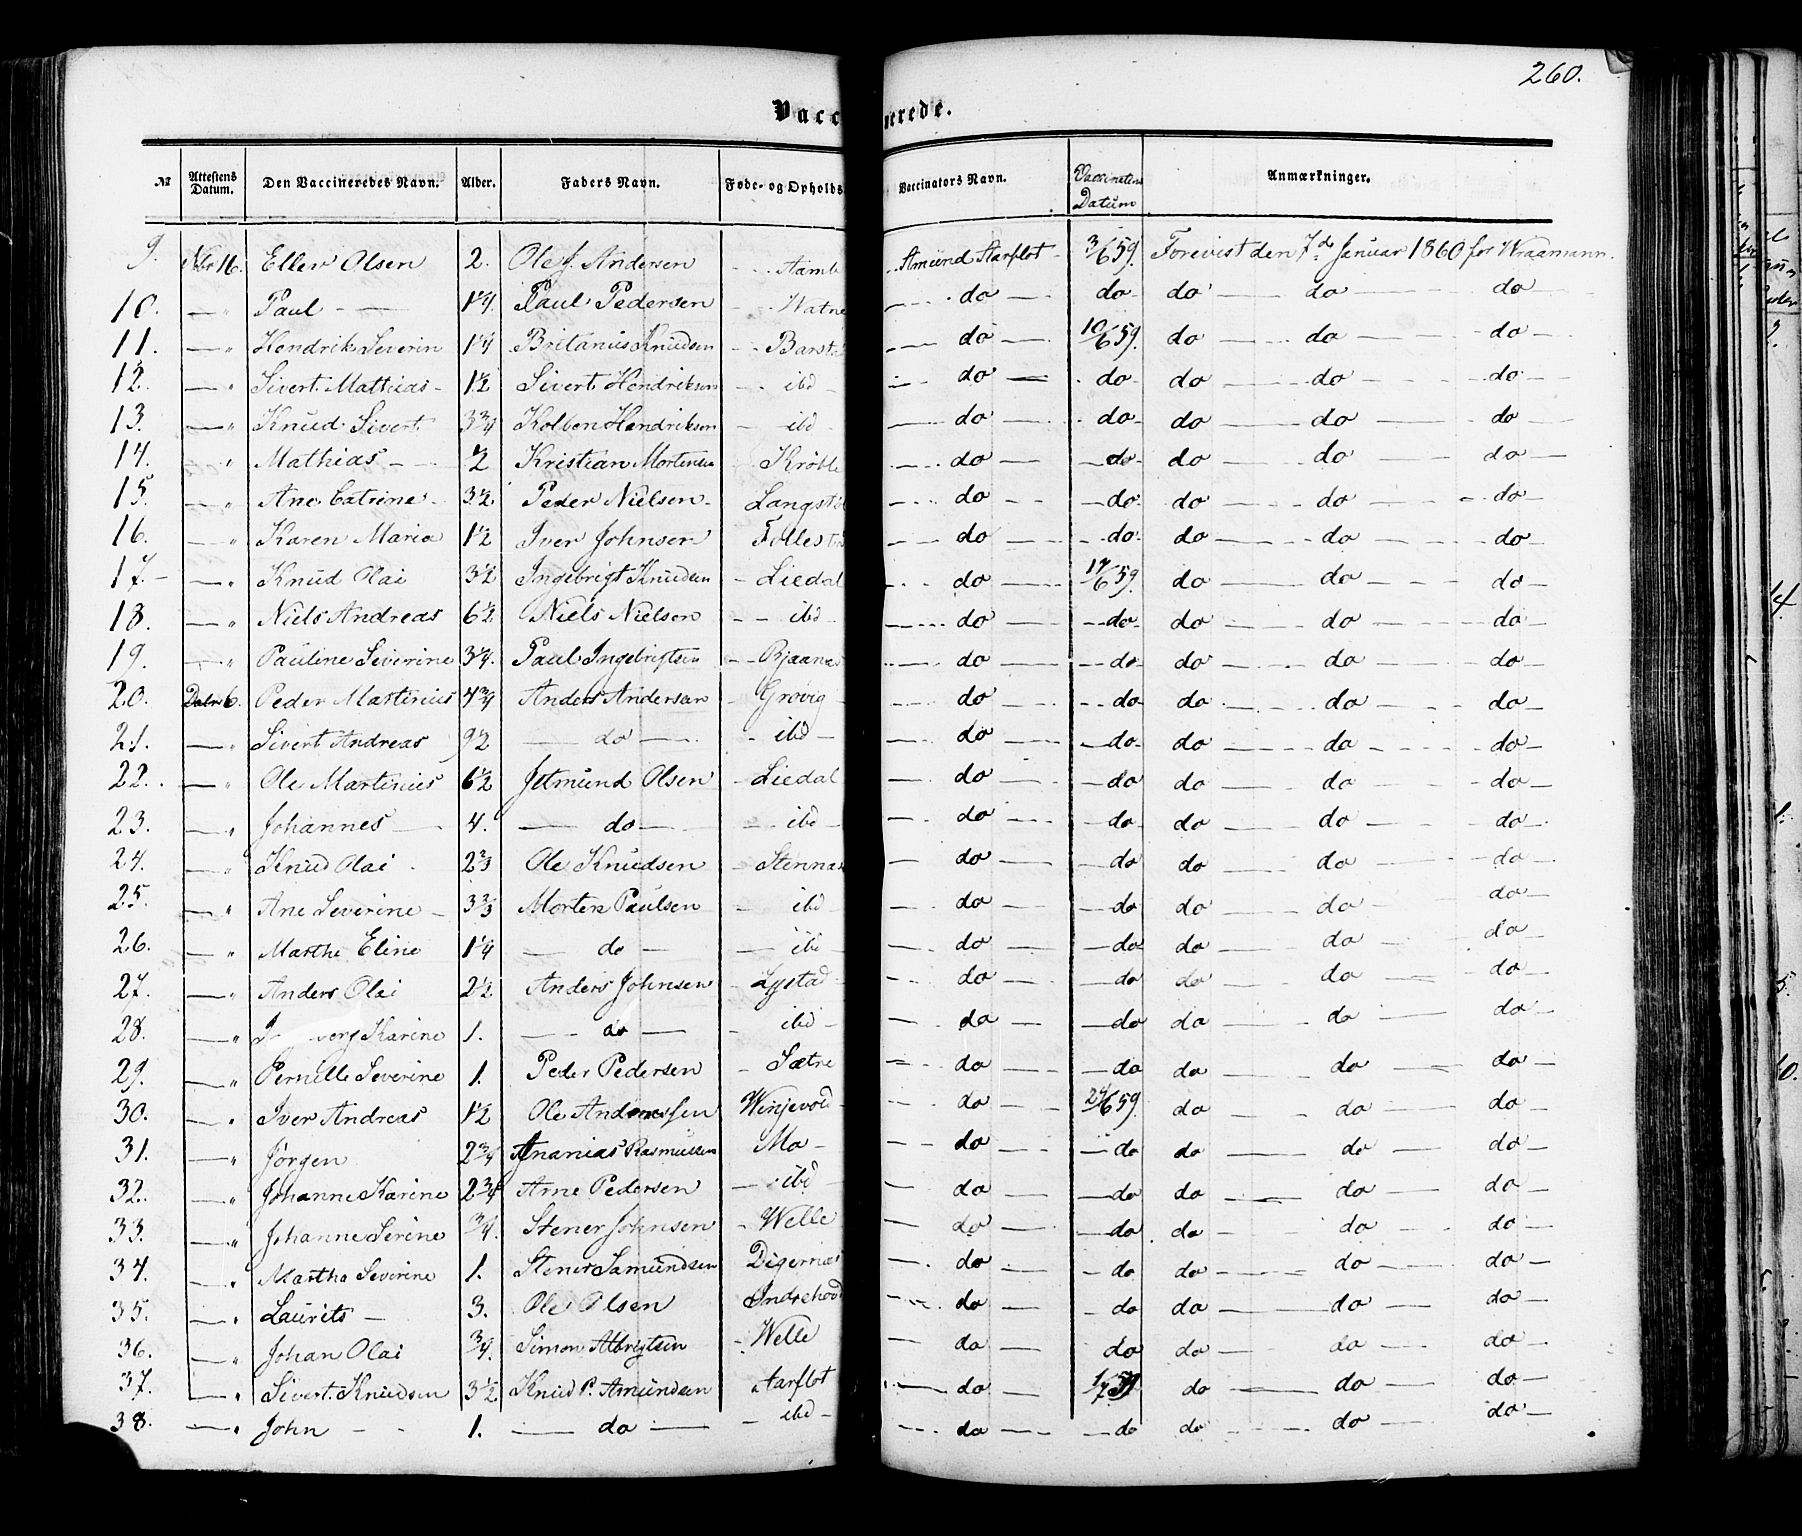 260.
Vacc nerede.
№ Attestens Datum. Den Vaccineredes Navn. Alder. Faders Navn. Føde- og Opholds Vaccinators Navn. Vaccinations Datum Anmærkninger.
9. 16. Eller Olsen 2. Ole J. Andersen - Aamb - Amund Aarflot - 3/6 59. Forevist den 7de Januar 1860 for Kraamann.
10. — " Paul — 1 1/4 Paul Pedersen - Watne — do — do - do — do — do —
11. — " Hendrik Severin 1 1/4 Britanius Knudsen - Barst — do — 10/6 59. do — do — do —
12. — " Sivert Mathias - 1 1/2 Sivert Hendriksen - ibd — do — do - do — do — do —
13. — " Knud Sivert 3 3/4 Kolben Hendriksen - ibd - — do — do - do — do — do
14. " Mathias - 1/2 Kristian Mortensen - Krøtle — do — do - do — do — do —
15. — " Ane Catrine - 3 1/2 Peder Nielsen - Langst — do — do - do — do — do —
16. " Karen Maria 1 1/2 Iver Johnsen Follest — do — do - do — do — do —
17. — " Knud Olai 3 1/2 Ingebrigt Knudsen - Liedal — do — 17/6 59. do — do — do
18. — " Niels Andreas 6 1/2 Niels Nielsen - ibd - — do — do - do — do — do —
19. " Pauline Severine 3/4. Paul Ingebrigtsen - Bjaanæs — do — do - do — do — do —
20. Dcbr 6. Peder Martinius 4 3/4 Anders Andersen - Grøvig — do — do - do — do — do —
21. — " Sivert Andreas 9 1/2 — do — - ibd — do — do - do — do — do —
22. — " Ole Martinius 6 1/2 Jetmund Olsen - Liedal — do — do do — do — do —
23. — " Johannes — 4. — do — - ibd — do — do - do — do — do —
24. — " Knud Olai 2 2/3 Ole Knudsen - Stennæs — do — do do — do — do —
25. — " Ane Severine - 3 2/3 Morten Paulsen - ibd - — do — do do — do — do —
26. — " Marthe Eline 1 1/4 — do — — ibd - — do — do do — do — do —
27. — " Anders Olai 2 1/2 Anders Johnsen - Lystad — do — do do — do — do —
28. — " Karine 1. — do — - ibd - — do — do do — do — do —
29. — " Pernille Severine 1. Peder Pedersen - Sætre — do — do do — do — do —
30. — " Iver Andreas 1 1/2 Ole Andersen Winjevold — do — 24/6 59. do — do — do —
31. — " Jørgen 2 3/4 Ananias Rasmussen Mo — do — do do — do — do —
32. — " Johanne Karine 2 3/4 Arne Pedersen — ibd - — do — do do — do — do —
33. — " Johanne Serine 3/4. Stener Johnsen - Welle — do — do. do — do — do —
34. — " Martha Severine 1. Stener Samundsen Digernæs — do — do do — do — do —
35. — " Laurits — 3. Ole Olsen Indrehovd — do — do do — do — do —
36. — " Johan Olai 3/4. Simon Albrigtsen - Welle — do — do do — do — do —
37. — " Sivert Knudsen 3 1/2 Knud P. Amundsen Aarflot — do — 1/7 59 do — do — do —
38. — " John — 1. — do — - ibd - — do — do do — do — do —